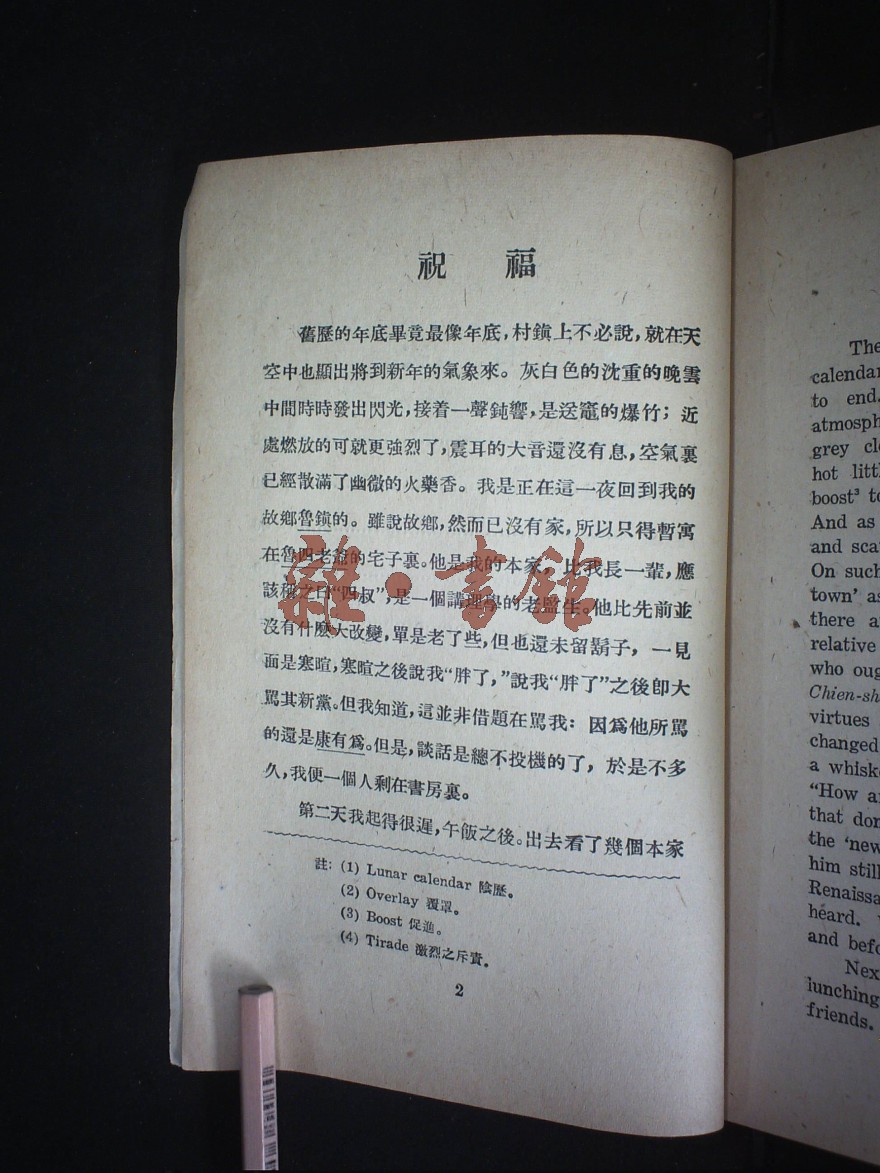 祝 福
舊歷的年底畢竟最像年底，村鎭上不必說，就在天
空中也顯出將到新年的氣象來。灰白色的沈重的晚雲
中間時時發出閃光，接着一聲鈍響，是送竈的爆竹；近
處燃放的可就更強烈了，震耳的大音還沒有息，空氣裏
已經散滿了幽微的火藥香。我是正在這一夜回到我的
故鄉魯鎭的。雖說故鄉，然而已沒有家，所以只得暫寓
在魯四老爺的宅子裏。他是我的本家，比我長一輩，應
該稱之曰“四叔”，是一個講理學的老監生。他比先前並
沒有什麼大改變，單是老了些，但也還未留鬍子，一見
面是寒暄，寒暄之後說我“胖了，”說我“胖了”之後卽大
駡其新黨。但我知道，這並非借題在駡我：因爲他所駡
的還是康有爲。但是，談話是總不投機的了，於是不多
久，我便一個人剩在書房裏。
第二天我起得很遲，午飯之後。出去看了幾個本家
註：(1) Lunar calendar 陰歷。
(2) Overlay 覆罩。
(3) Boost 促進。
(4) Tirade 激烈之斥責。
2
雜·書館
The
calendar
to end.
atmosph
grey clo
hot littl
boost³ to
And as
and scat
On such
town’ as
there a
relative
who oug
Chien-sh
virtues
changed
a whisk
“How ar
that don
the ‘new
him still
Renaissa
heard.
and befo
Next
lunching
friends.